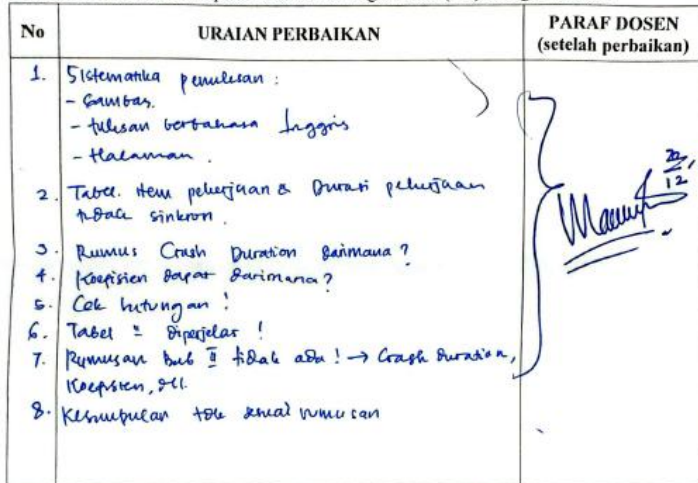 No
URAIAN PERBAIKAN
PARAF DOSEN
(setelah perbaikan)
1. Sistematika penulisan :
- Gambar.
- tulisan berbahasa Inggris
- Halaman .
2. Tabel. Item pekerjaan & Durasi pekerjaan
tidak sinkron .
3. Rumus Crash Duration darimana ?
4. Koefisien dapat darimana ?
5. Cek hitungan !
6. Tabel = diperjelas !
7. Rumusan bab II tidak ada ! → Crash Duration,
Koefisien, dll.
8. Kesimpulan tdk sesuai rumusan
20/12